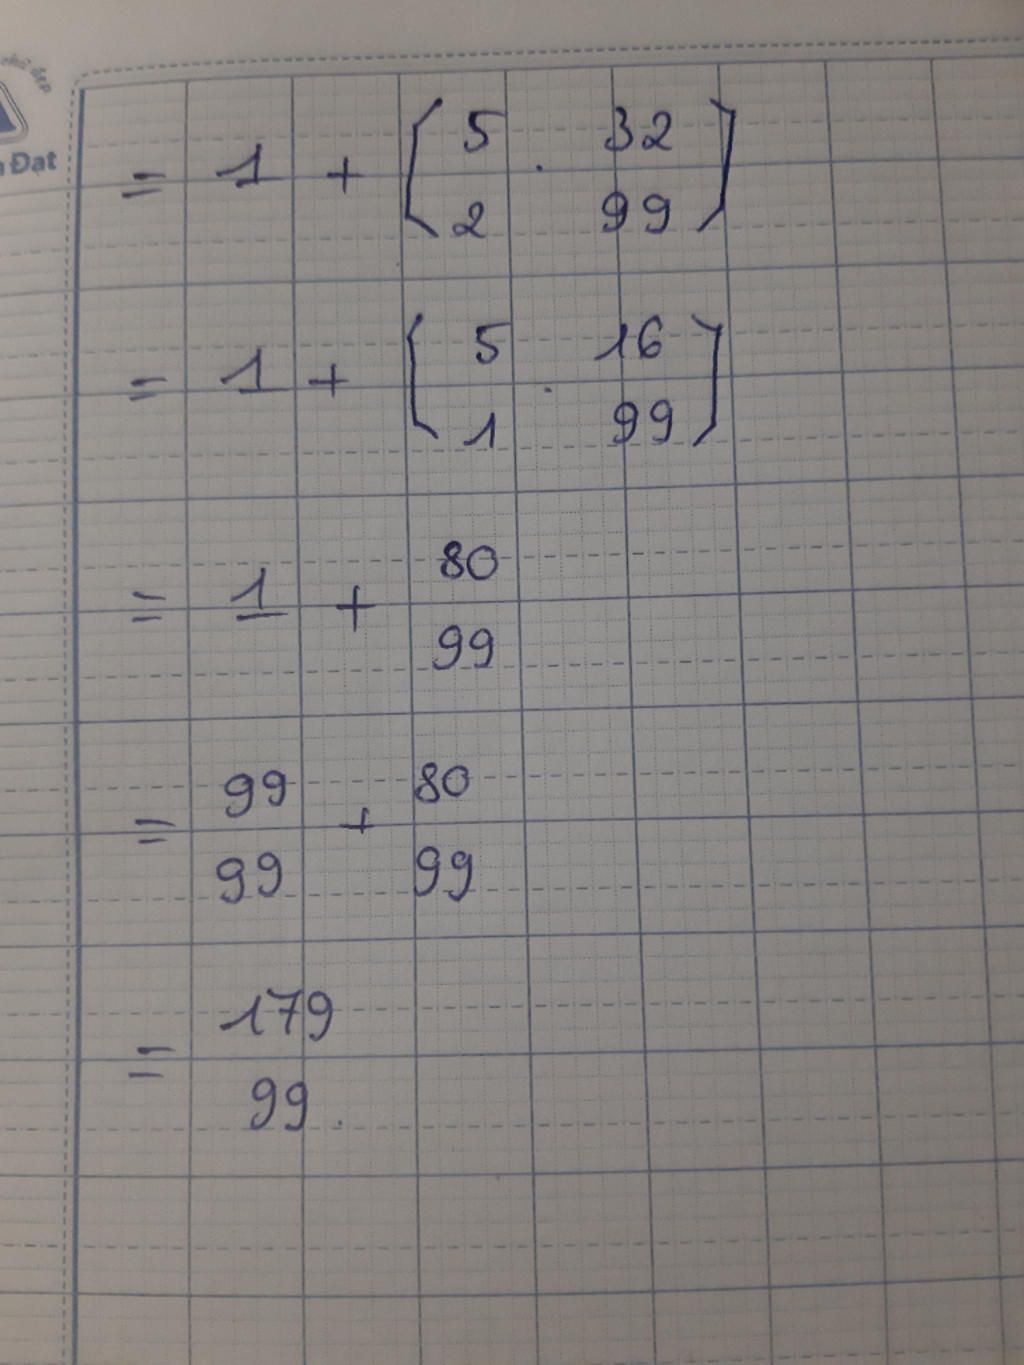 chữ đẹp
Đạt
= 1 + (5/2 . 32/99)
= 1 + (5/1 . 16/99)
= 1 + 80/99
= 99/99 + 80/99
= 179/99.